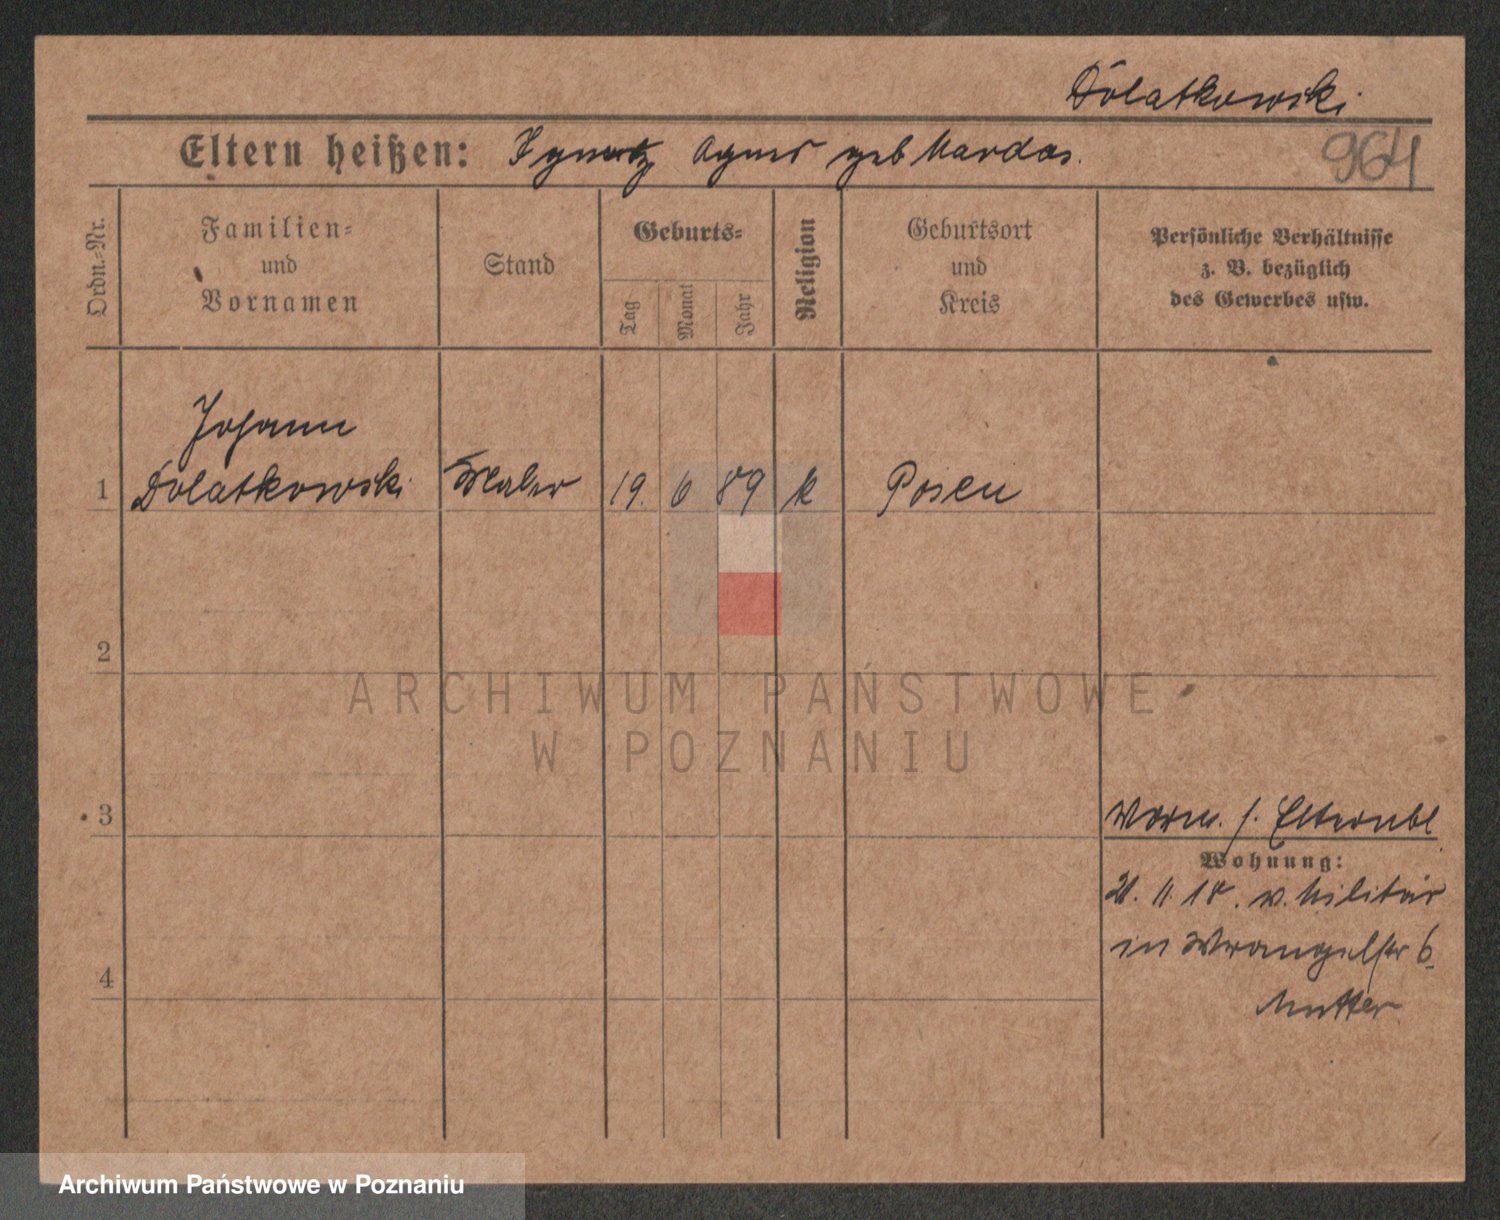 Dolatkowski
Eltern heißen: Ignatz Agnes geb Mardas.
964
Ordn.-Nr.
Familien-
und
Vornamen
Stand
Geburts-
Tag
Monat
Jahr
Religion
Geburtsort
und
Kreis
Persönliche Verhältnisse
z. B. bezüglich
des Gewerbes usw.
Johann
1 Dolatkowski Maler 19. 6 89 k Posen
2
ARCHIWUM PAŃSTWOWE
W POZNANIU
3
Vorm. s. Elternbl
Wohnung:
21. 11. 18. v. Militär
in Wrangelstr 6
4
Mutter
Archiwum Państwowe w Poznaniu